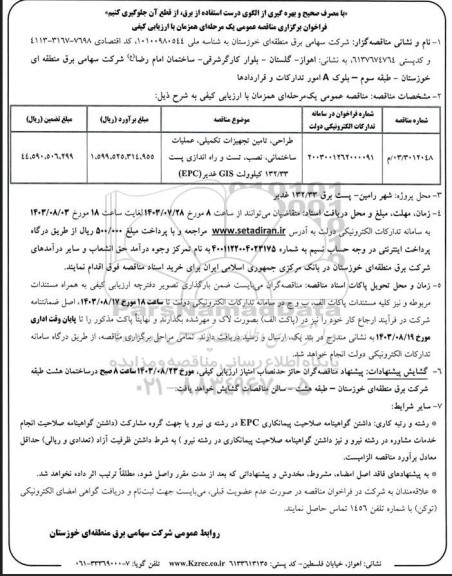 «با مصرف صحیح و بهره گیری از الگوی درست استفاده از برق، از قطع آن جلوگیری کنیم»
فراخوان برگزاری مناقصه عمومی یک مرحله‌ای همزمان با ارزیابی کیفی
۱- نام و نشانی مناقصه‌گزار: شرکت سهامی برق منطقه‌ای خوزستان به شناسه ملی ۱۰۱۰۰۹۸۰۵۴۴، کد اقتصادی ۷۶۹۸-۳۱۶۷-۴۱۱۳
و کدپستی ۶۱۳۷۶۷۴۷۶۴، به نشانی: اهواز- گلستان - بلوار کارگرشرقی- ساختمان امام رضا(ع) شرکت سهامی برق منطقه ای
خوزستان - طبقه سوم – بلوک A امور تدارکات و قراردادها
۲- مشخصات مناقصه: مناقصه عمومی یک‌مرحله‌ای همزمان با ارزیابی کیفی به شرح ذیل:
شماره مناقصه شماره فراخوان در سامانه تدارکات الکترونیکی دولت موضوع مناقصه مبلغ برآورد (ریال) مبلغ تضمین (ریال)
۰۳/۳۰۱۲۰۴۸/م ۲۰۰۳۰۰۱۲۶۲۰۰۰۰۹۱ طراحی، تامین تجهیزات تکمیلی، عملیات ساختمانی، نصب، تست و راه اندازی پست ۱۳۲/۳۳ کیلوولت GIS غدیر(EPC) ۱,۵۹۹,۵۲۵,۳۱۴,۹۵۵ ۴۴,۵۹۰,۵۰۶,۲۹۹
۳- محل پروژه: شهر رامین- پست برق ۱۳۲/۳۳ غدیر
۴- زمان، مهلت، مبلغ و محل دریافت اسناد: متقاضیان می‌توانند از ساعت ۸ مورخ ۱۴۰۳/۰۷/۲۸ لغایت ساعت ۱۸ مورخ ۱۴۰۳/۰۸/۰۳
به سامانه تدارکات الکترونیکی دولت به آدرس www.setadiran.ir مراجعه و با پرداخت مبلغ ۵۰۰/۰۰۰ ریال از طریق درگاه
پرداخت اینترنتی در وجه حساب تسیم به شماره ۴۰۰۱۱۲۲۰۰۴۰۲۳۱۷۵ به نام تمرکز وجوه درآمد حق انشعاب و سایر درآمدهای
شرکت برق منطقه‌ای خوزستان در بانک مرکزی جمهوری اسلامی ایران برای خرید اسناد مناقصه فوق اقدام نمایند.
۵- زمان و محل تحویل پاکات اسناد مناقصه: مناقصه‌گران می‌بایست ضمن بارگذاری تصویر دفترچه ارزیابی کیفی به همراه مستندات
مربوطه و نیز کلیه مستندات پاکات الف، ب و ج در سامانه تدارکات الکترونیکی دولت تا ساعت ۱۸ مورخ ۱۴۰۳/۰۸/۱۷، اصل ضمانتنامه
شرکت در فرآیند ارجاع کار خود را نیز در (پاکت الف) بصورت لاک و مهرشده بگذارند و نهایتاً پاکت مذکور را تا پایان وقت اداری
مورخ ۱۴۰۳/۰۸/۱۹ به نشانی مندرج در بند یک، ارسال و رسید دریافت دارند. تمامی مراحل برگزاری مناقصه، از طریق درگاه سامانه
تدارکات الکترونیکی دولت انجام خواهد شد.
۶- گشایش پیشنهادات: پیشنهاد مناقصه‌گران حائز حدنصاب امتیاز ارزیابی کیفی، مورخ ۱۴۰۳/۰۸/۲۳ ساعت ۸ صبح درساختمان هشت طبقه
شرکت برق منطقه‌ای خوزستان – طبقه هشت - سالن مناقصات گشایش خواهد یافت.
۷- سایر شرایط:
* رشته و رتبه کاری: داشتن گواهینامه صلاحیت پیمانکاری EPC در رشته ی نیرو یا جهت گروه مشارکت (داشتن گواهینامه صلاحیت انجام
خدمات مشاوره در رشته نیرو و نیز داشتن گواهینامه صلاحیت پیمانکاری در رشته نیرو ) به شرط داشتن ظرفیت آزاد (تعدادی و ریالی) حداقل
معادل برآورد مناقصه الزامیست.
* به پیشنهادهای فاقد اصل امضاء، مشروط، مخدوش و پیشنهاداتی که بعد از مدت مقرر واصل شود، مطلقاً ترتیب اثر داده نخواهد شد.
* علاقه‌مندان به شرکت در فراخوان مناقصه در صورت عدم عضویت قبلی، می‌بایست جهت ثبت‌نام و دریافت گواهی امضای الکترونیکی
(توکن) با شماره تلفن ۱۴۵۶ تماس حاصل نمایند.
روابط عمومی شرکت سهامی برق منطقه‌ای خوزستان
نشانی: اهواز، خیابان فلسطین- کد پستی: ۶۱۳۳۶۱۳۱۳۵ www.Kzrec.co.ir تلفن گویا: ۷-۳۳۳۶۹۰۰۰-۰۶۱